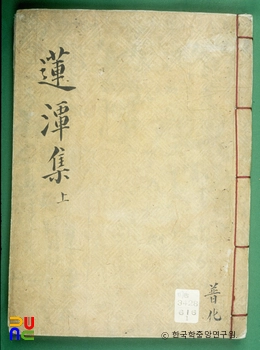 蓮潭集
上
普化
© 한국학중앙연구원